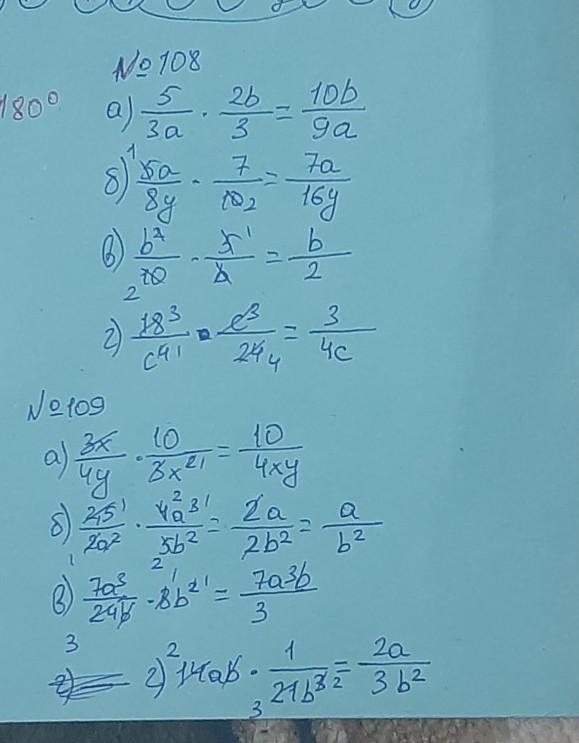 №108
180°
а) 5/3a · 2b/3 = 10b/9a
б) 5a/8y · 7/10 = 7a/16y
в) b²/10 · 5/b = b/2
г) 18/c⁴ · c³/24 = 3/4c
№109
а) 3x/4y · 10/3x² = 10/4xy
б) 25/2a² · 4a³/5b² = 2a/2b² = a/b²
в) 7a³/24b · 8b² = 7a³b/3
г) 14ab · 1/21b³ = 2a/3b²